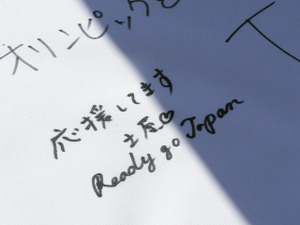 オリンピックを
応援してます
土屋♡
Ready go Japan